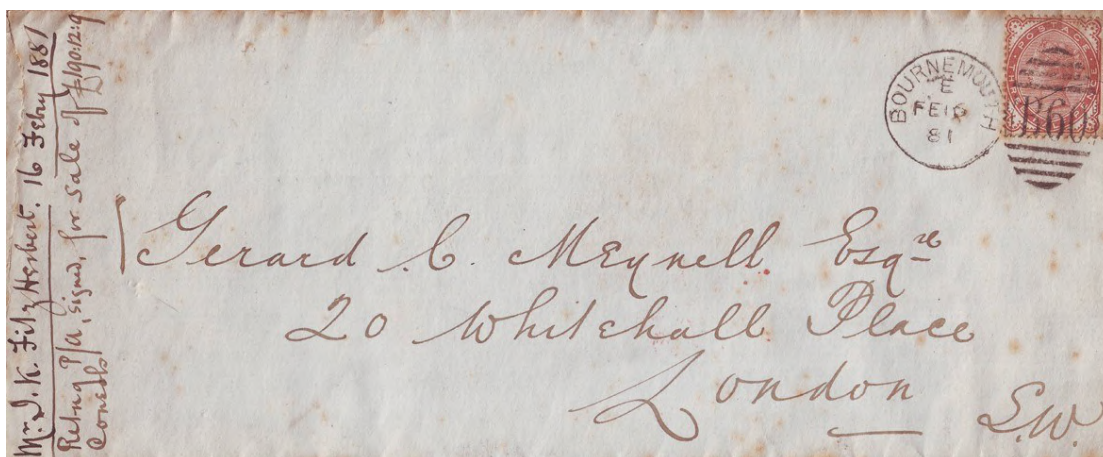 Mr. J. K. FitzHerbert. 16 Febry 1881
Retng P/A, signed, for sale of £190:12:9
Consols
BOURNEMOUTH
E
FE 16
81
POSTAGE
B60
Gerard C. Meynell Esqre
20 Whitehall Place
London S.W.